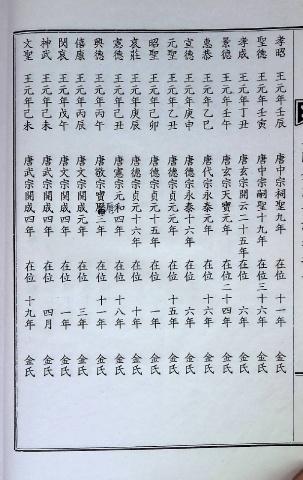 孝昭 王元年壬辰 唐中宗嗣聖九年 在位 十一年 金氏
聖德 王元年壬寅 唐中宗嗣聖十九年 在位 三十六年 金氏
孝成 王元年丁丑 唐玄宗開云二十五年 在位 六年 金氏
景德 王元年壬午 唐玄宗天寶元年 在位 二十四年 金氏
惠恭 王元年乙巳 唐代宗永泰元年 在位 十六年 金氏
宣德 王元年庚申 唐德宗永泰十六年 在位 六年 金氏
元聖 王元年乙丑 唐德宗貞元元年 在位 十五年 金氏
昭聖 王元年己卯 唐德宗貞元十五年 在位 一年 金氏
哀莊 王元年庚辰 唐德宗貞元十六年 在位 十年 金氏
憲德 王元年己丑 唐憲宗元和四年 在位 十八年 金氏
興德 王元年丙午 唐敬宗寶曆二年 在位 十一年 金氏
僖康 王元年丙辰 唐文宗開成元年 在位 三年 金氏
閔哀 王元年戊午 唐文宗開成三年 在位 一年 金氏
神武 王元年己未 唐文宗開成四年 在位 四月 金氏
文聖 王元年己未 唐武宗開成四年 在位 十九年 金氏